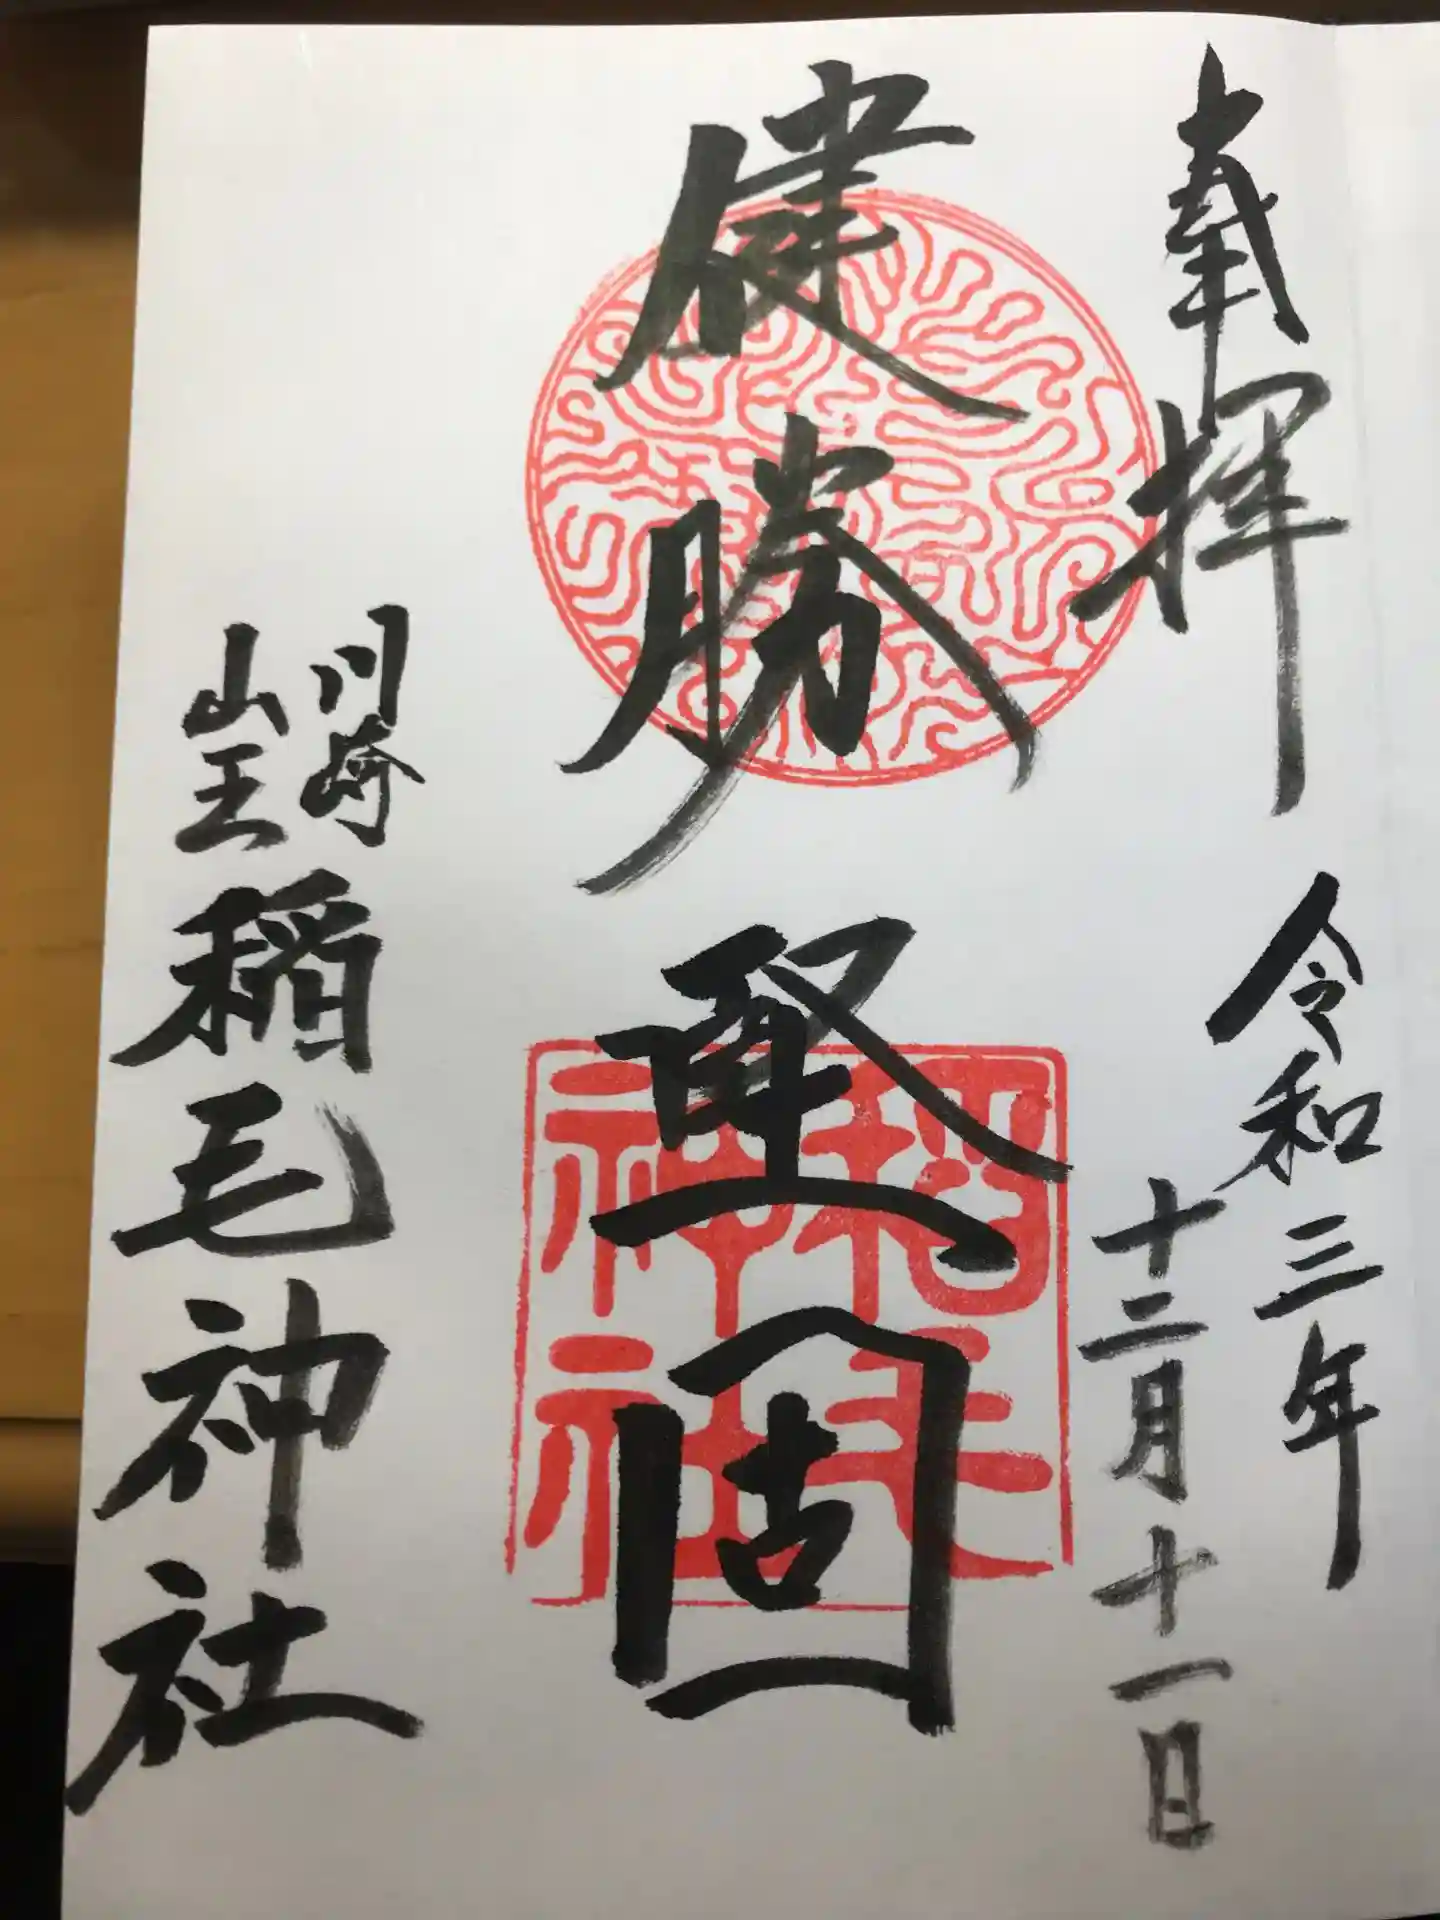 奉拝
令和三年
十二月十一日
健勝堅固
川崎
山王
稲毛神社
稲毛
神社